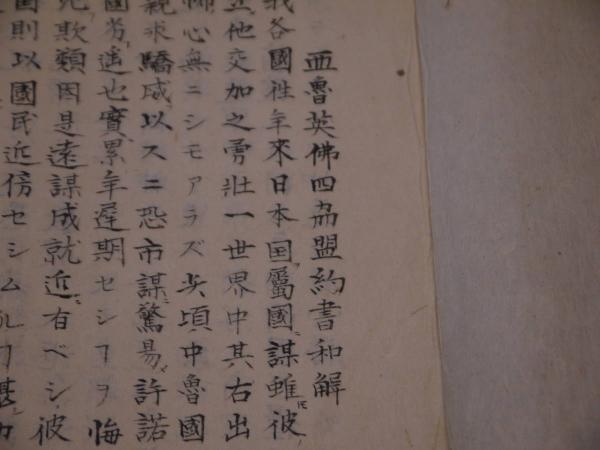 亜魯英佛四夷盟約書和解
我各國往年来日本国属國ニ謀雖モ彼
立他交加之勇壯一世界中其右出
怖心無ニシモアラズ 頃中魯國
親求驕威以スニ恐市謀驚易許諾
國労遥也實累年遅期セシヿヲ悔
欺類因是遠謀成就近ニ有ベシ彼
則以國民近傍セシムルヿ甚カ